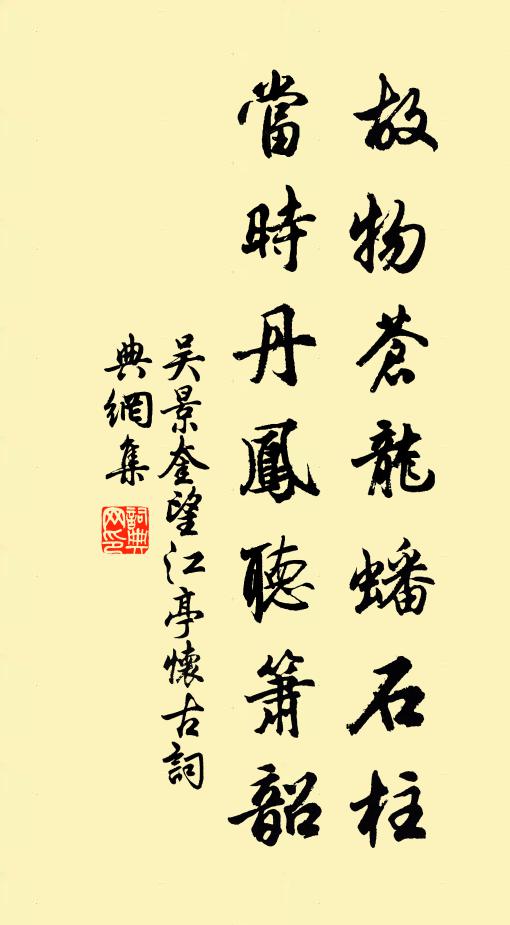 故物蒼龍蟠石柱
當時丹鳳聽簫韶
吴景奎望江亭懷古詞
典網集
詞典
网印